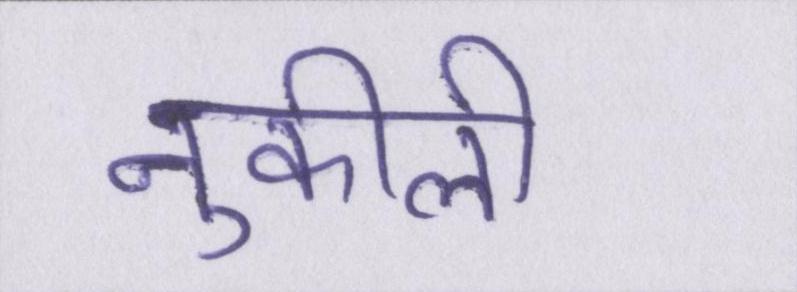 नुकीली